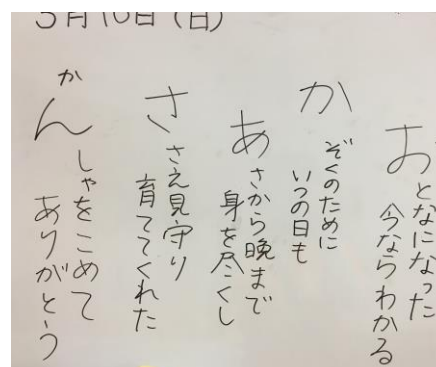 5月10日(日)
おとなになった
今ならわかる
かぞくのために
いつの日も
あさから晩まで
身を尽くし
ささえ見守り
育ててくれた
かんしゃをこめて
ありがとう